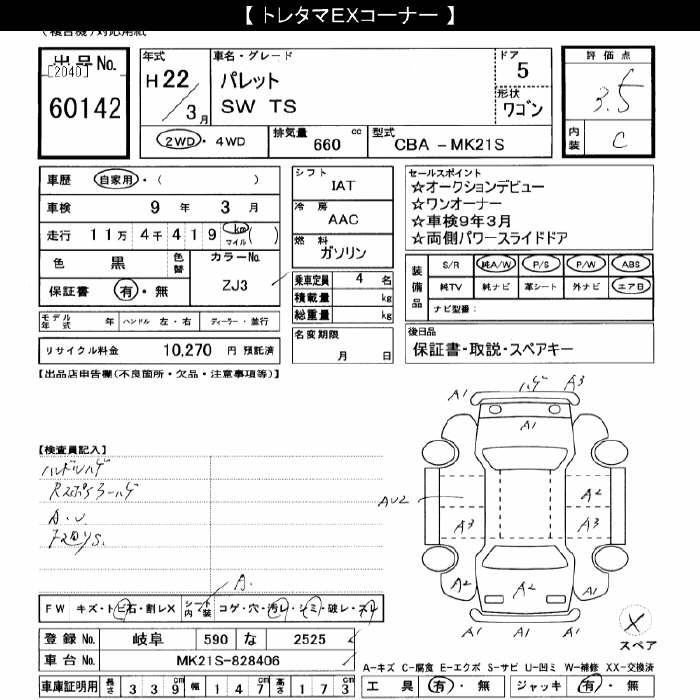 【 トレタマEXコーナー 】
(複合機)対応用紙
出品No.
[2040]
60142
年式
H 22 / 3 月
車名・グレード
パレット
SW TS
ドア
5
形状
ワゴン
評価点
3.5
内装
C
2WD・4WD
排気量 cc
660
型式
CBA - MK21S
車歴 自家用・( )
車検 9 年 3 月
走行 11万 4千 419 km マイル ( )
色 黒 色替
カラーNo.
ZJ3
保証書 有・無
モデル年式 年 ハンドル 左・右 ディーラー・並行
リサイクル料金 10,270 円 預託済
シフト
IAT
冷房
AAC
燃料
ガソリン
乗車定員 4 名
積載量 kg
総重量 kg
名変期限
月 日
セールスポイント
☆オークションデビュー
☆ワンオーナー
☆車検9年3月
☆両側パワースライドドア
装備品
S/R 純A/W P/S P/W ABS
純TV 純ナビ 革シート 外ナビ エアB
ナビ型番:
後日品
保証書・取説・スペアキー
【出品店申告欄(不良箇所・欠品・注意事項等)】
【検査員記入】
ハンドルハゲ
A.U.
A.
FW キズ・トビ石・割レX
シート内装 コゲ・穴・汚レ・シミ・破レ・スレ
登録 No. 岐阜 590 な 2525
車台 No. MK21S-828406
車庫証明用 長さ 339 cm 幅 147 cm 高さ 173 cm
A1 ハゲ A3
A1
A1 A1
AU2 A2
A3 A3
A2 A2 A1
A1 A1
X
スペア
A-キズ C-腐食 E-エクボ S-サビ U-凹ミ W-補修 XX-交換済
工具 有・無 ジャッキ 有・無